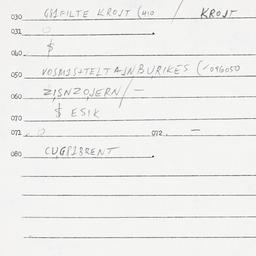 030 GIFILTE KROJT (410 / KROJT
031 0 .
040 $
050 VOSMISHTELTAJNBURIKES (-046050
060 ZISNZOJERN / —
070 $ ESIK
071 . 0 072. —
080 CUGRIBRENT .